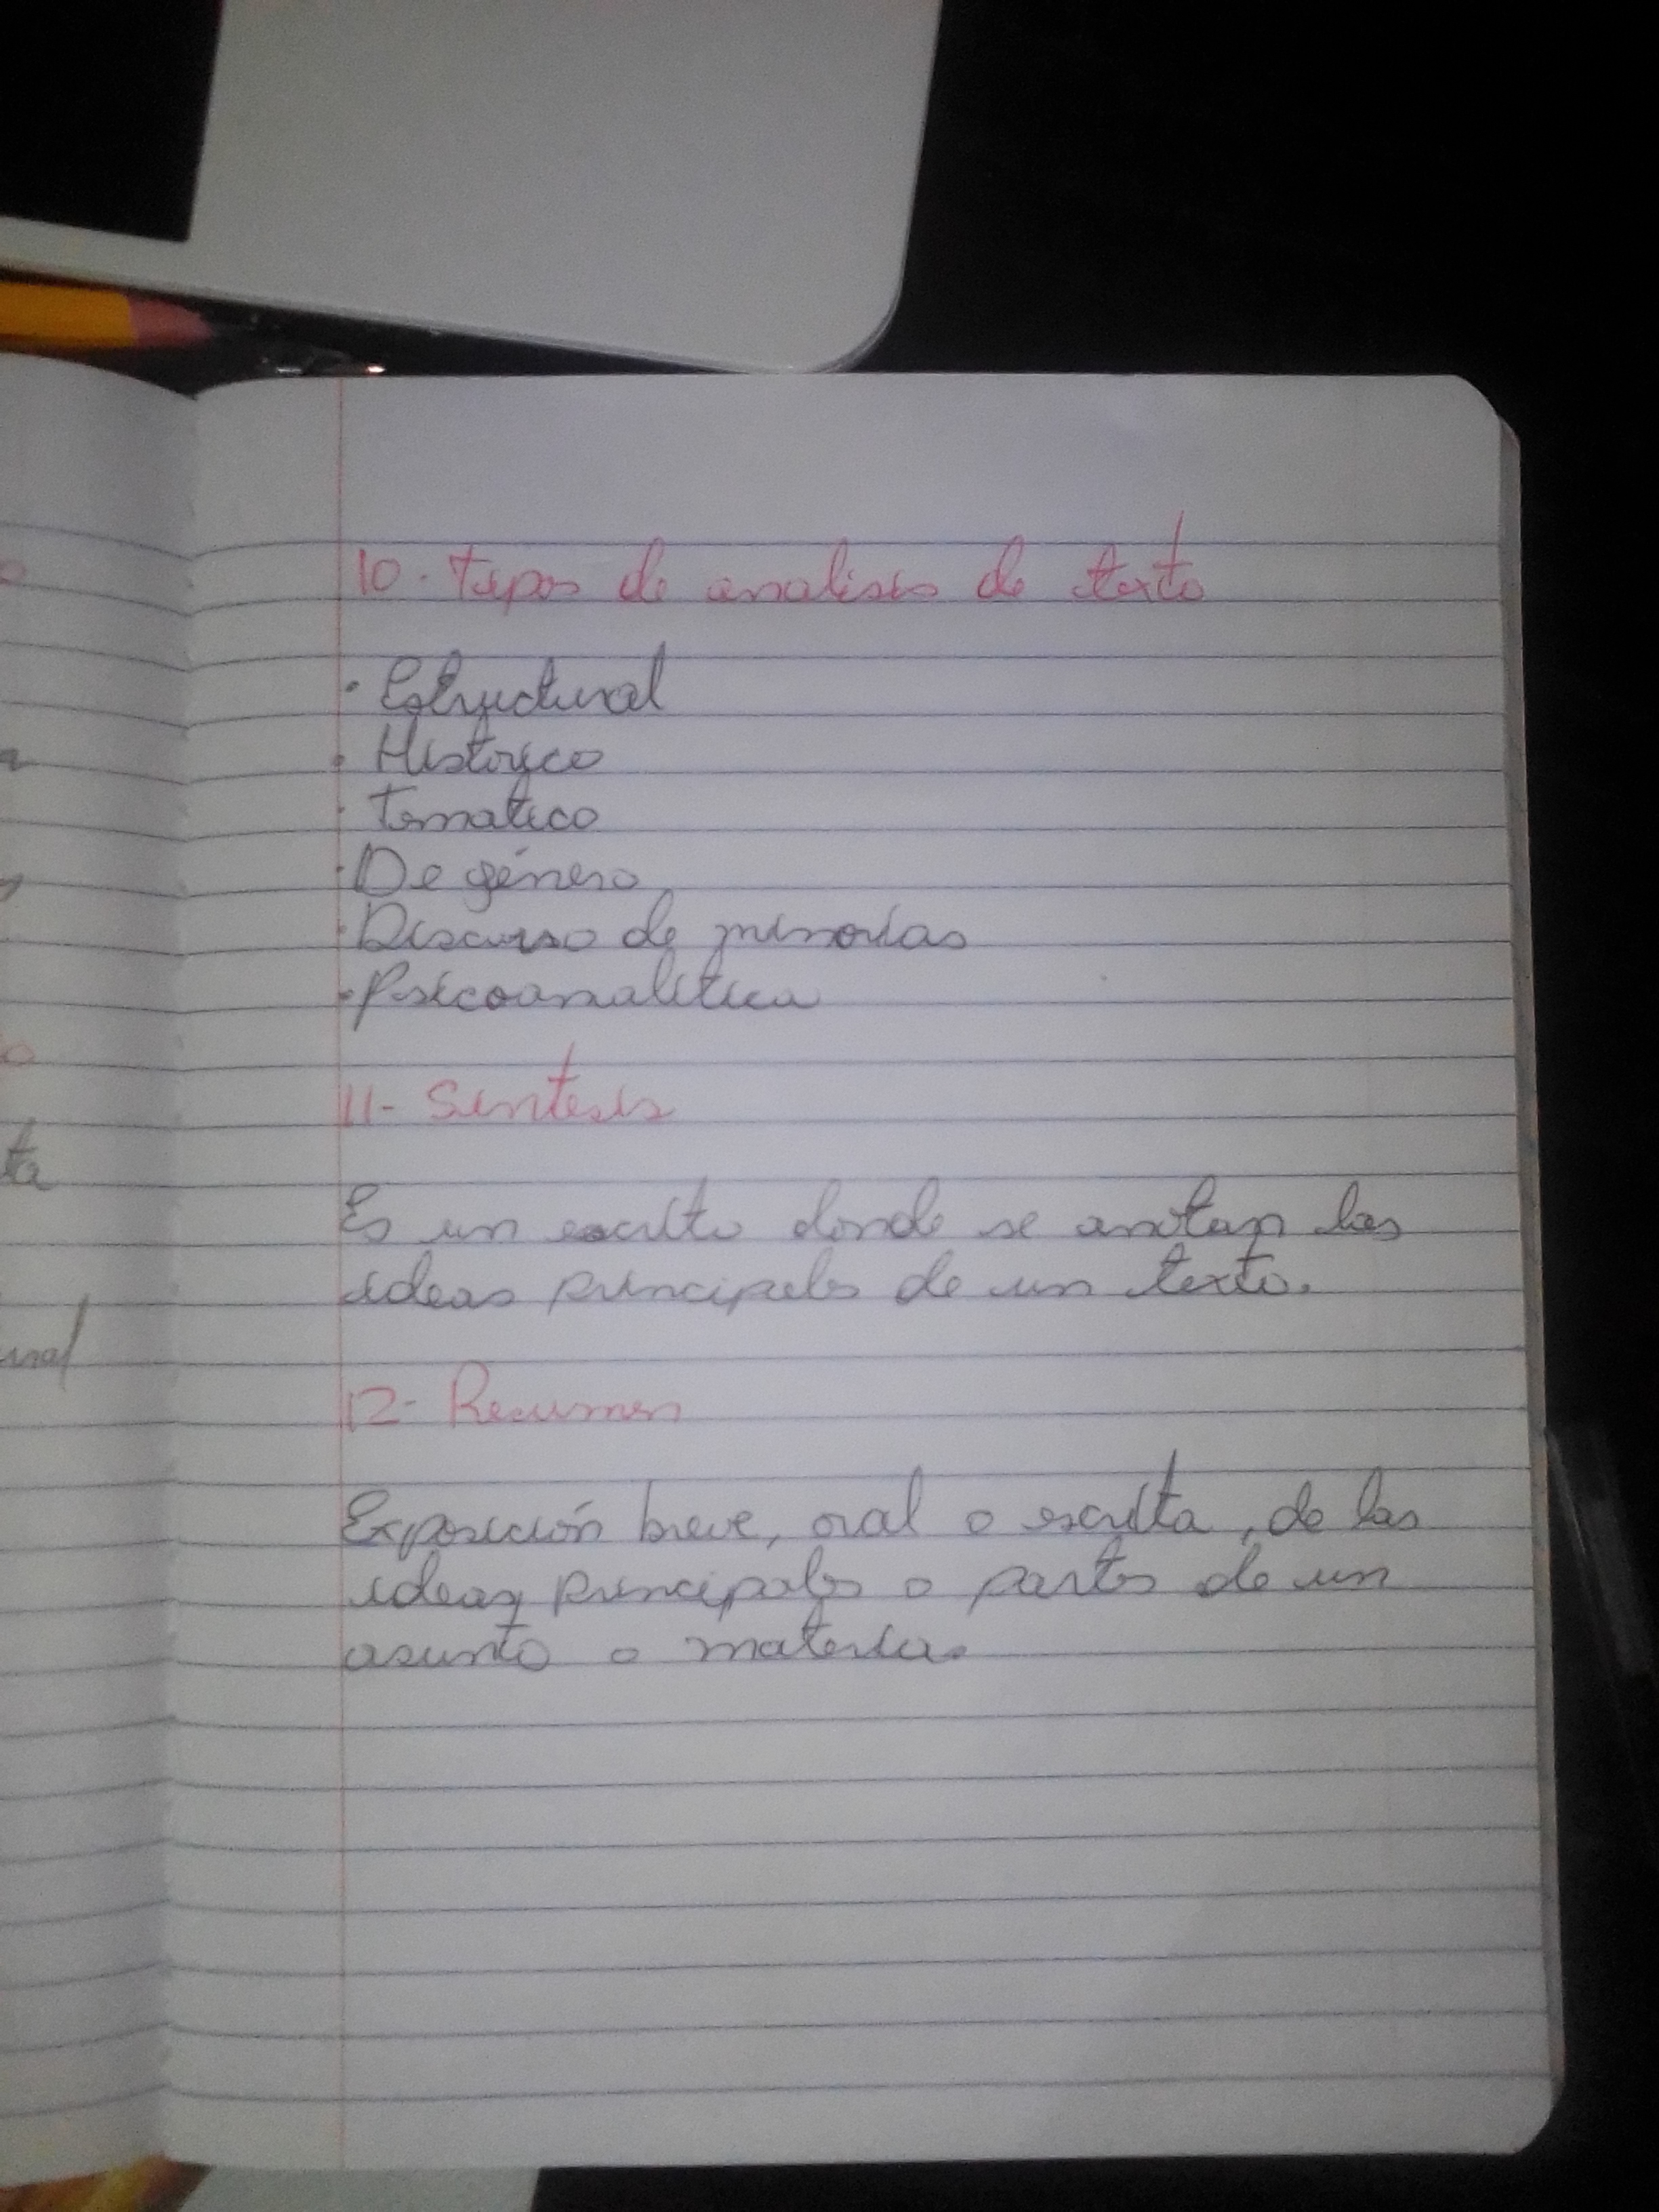 10- Tipos de analisis de texto
· Estructural
· Histórico
· Tematico
· De género
· Discurso de minorías
· Psicoanalítica
11- Sintesis
Es un escrito donde se anotan las
ideas principales de un texto.
12- Recumen
Exposición breve, oral o escrita, de las
ideas principales o partes de un
asunto o materia.